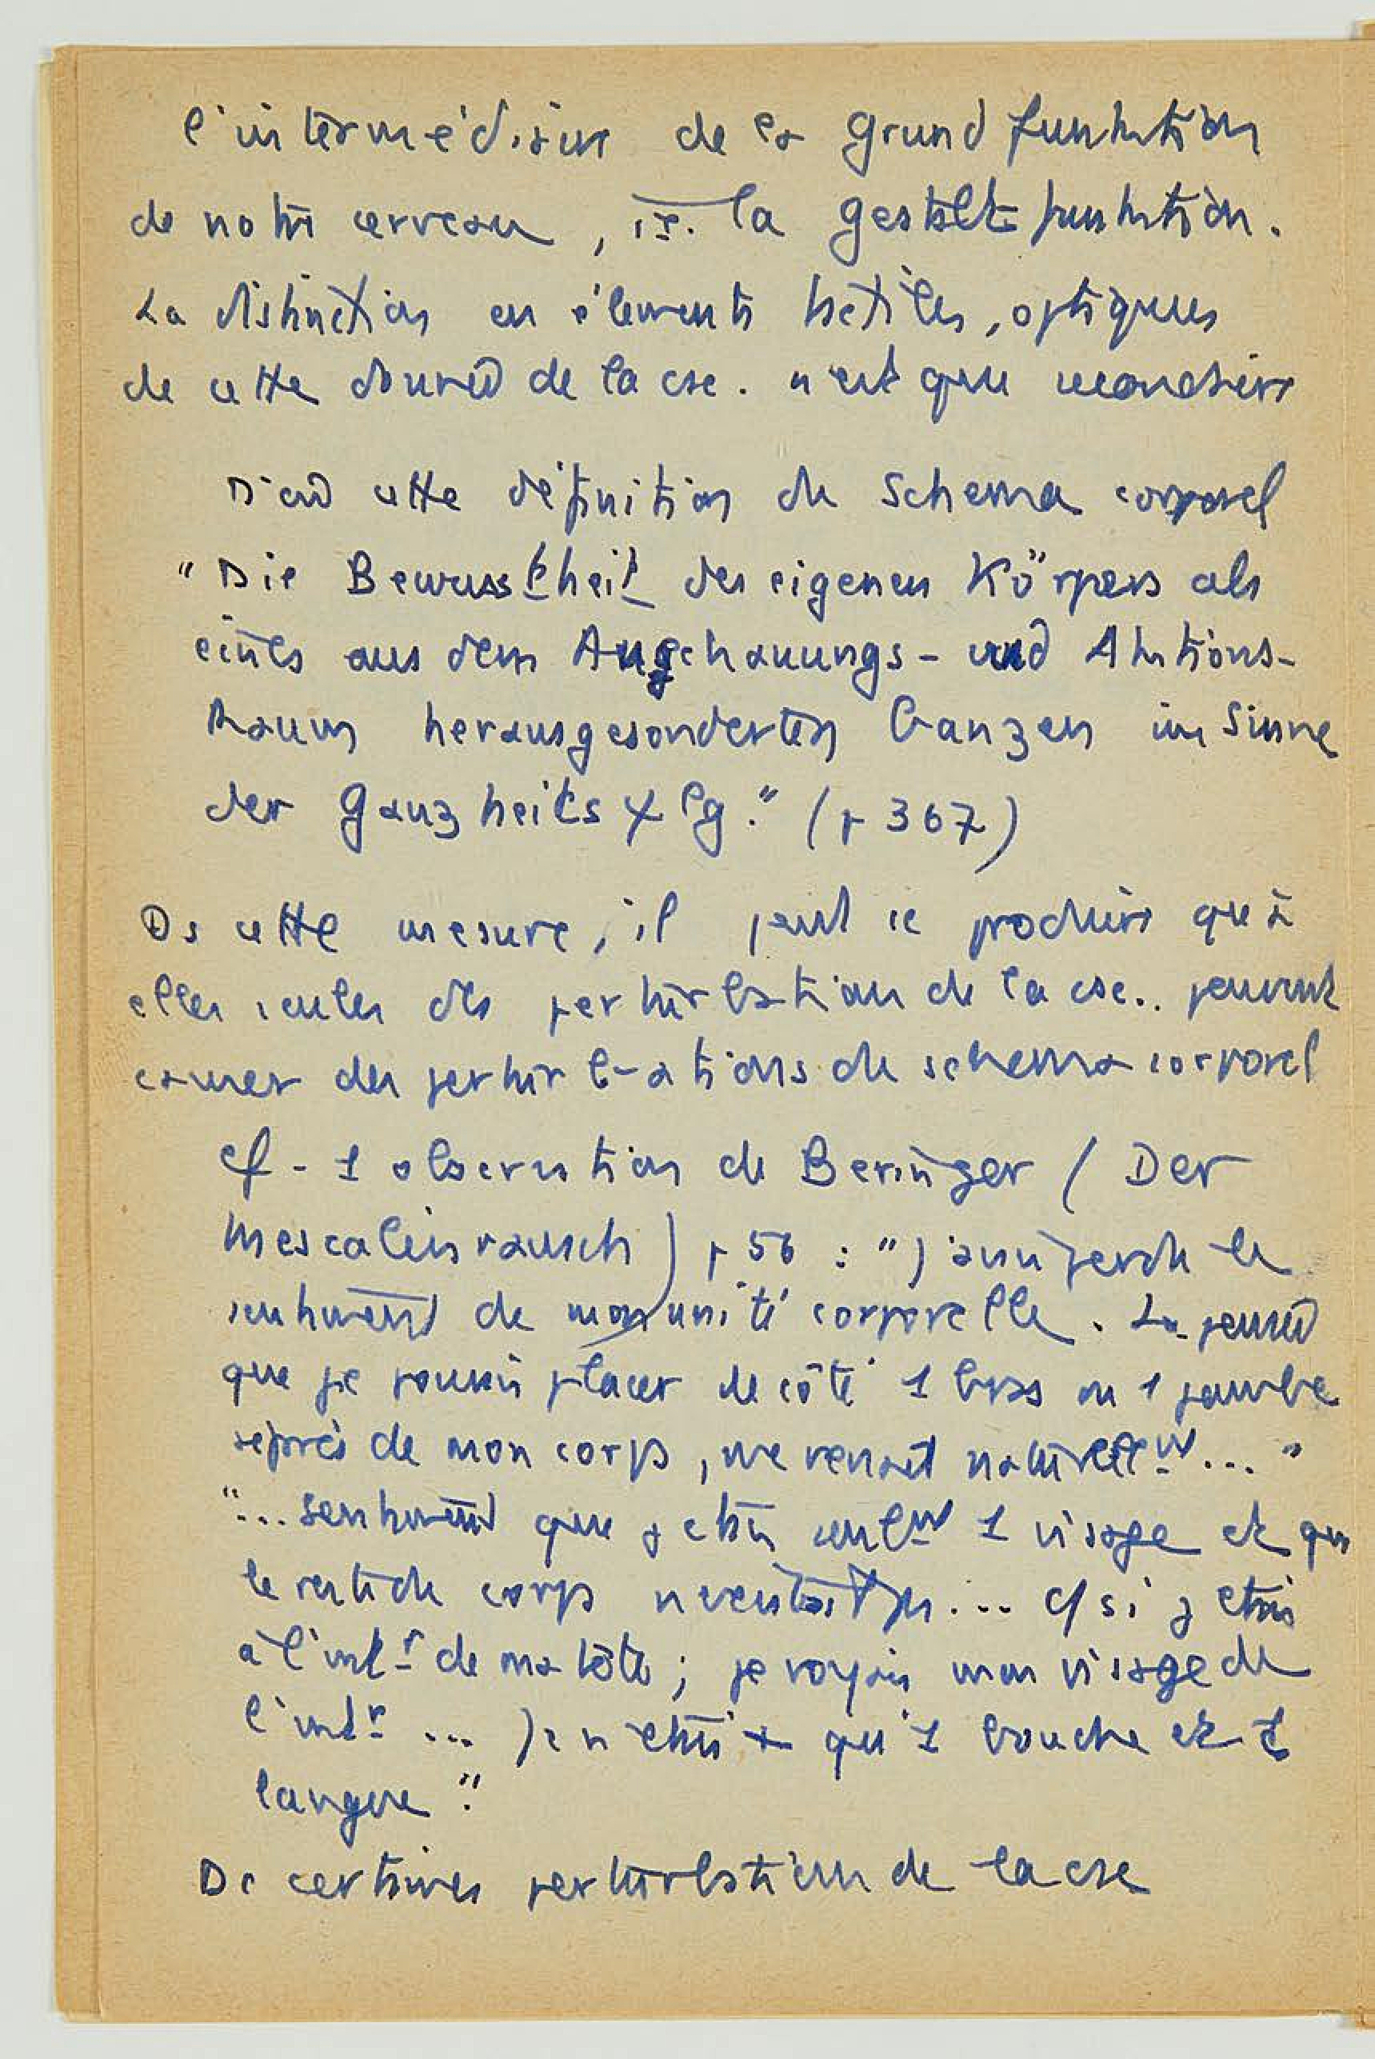 l'intermédiaire de la Grundfunktion
de notre cerveau, i.e. la Gestaltfunktion.
La distinction en éléments tactiles, optiques
de cette donnée de la csc. n'est que secondaire
D'où cette définition du schema corporel
"Die Bewusstheit des eigenen Körpers als
eines aus dem Anschauungs- und Aktions-
Raum herausgesonderten Ganzen im Sinne
der Ganzheits ψ lg." (p 367)
Ds cette mesure, il peut se produire qu'à
elles seules des perturbations de la csc.. peuvent
causer des perturbations du schema corporel
cf - 1 observation de Beringer (Der
Mescalinrausch) p 56 : "j'avais perdu le
sentiment de mon unité corporelle. La pensée
que je pouvais placer de côté 1 bras ou 1 jambe
séparés de mon corps, me venait naturellemt..."
"... sentiment que j'étais seulmt 1 visage et que
le reste du corps n'existait pas... c/ si j'étais
à l'intr de ma tête; je voyais mon visage de
l'intr ... Je n'étais + qu'1 bouche et 1
langue."
De certaines perturbations de la csc